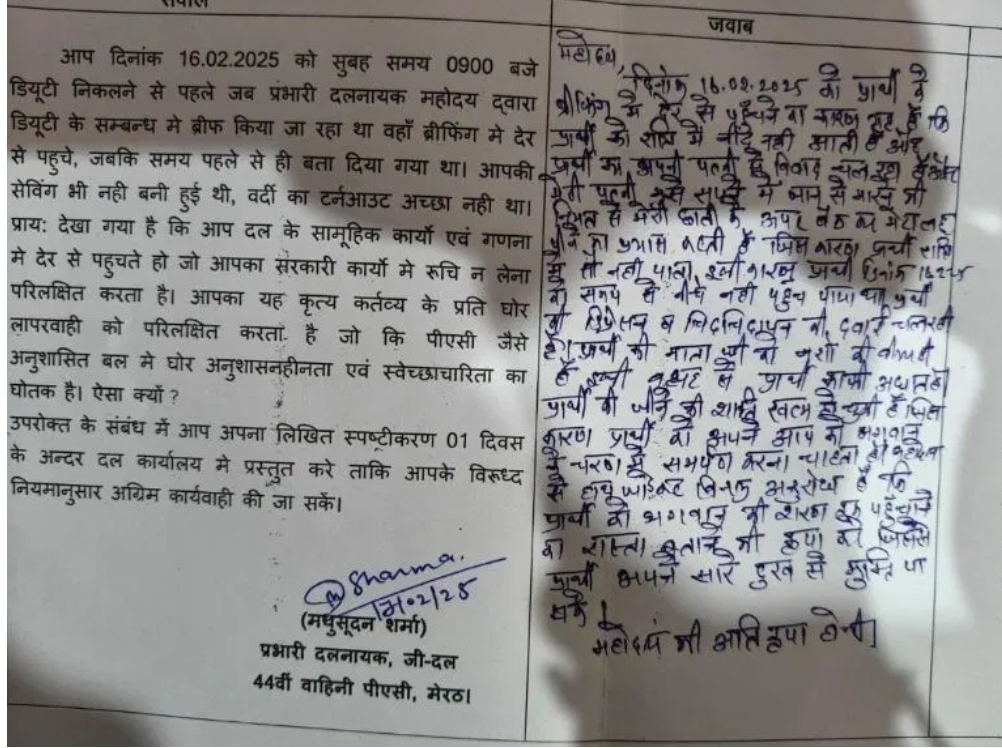 सवाल
आप दिनांक 16.02.2025 को सुबह समय 0900 बजे
डियूटी निकलने से पहले जब प्रभारी दलनायक महोदय द्वारा
डियूटी के सम्बन्ध मे ब्रीफ किया जा रहा था वहाँ ब्रीफिंग मे देर
से पहुचे, जबकि समय पहले से ही बता दिया गया था। आपकी
सेविंग भी नही बनी हुई थी, वर्दी का टर्नआउट अच्छा नही था।
प्राय: देखा गया है कि आप दल के सामूहिक कार्यो एवं गणना
मे देर से पहुचते हो जो आपका सरकारी कार्यो मे रूचि न लेना
परिलक्षित करता है। आपका यह कृत्य कर्तव्य के प्रति घोर
लापरवाही को परिलक्षित करता है जो कि पीएसी जैसे
अनुशासित बल मे घोर अनुशासनहीनता एवं स्वेच्छाचारिता का
घोतक है। ऐसा क्यों ?
उपरोक्त के संबंध में आप अपना लिखित स्पष्टीकरण 01 दिवस
के अन्दर दल कार्यालय मे प्रस्तुत करे ताकि आपके विरूध्द
नियमानुसार अग्रिम कार्यवाही की जा सकें।
Sharma
(मधुसूदन शर्मा)
प्रभारी दलनायक, जी-दल
44वीं वाहिनी पीएसी, मेरठ।
जवाब
महोदय,
दिनांक 16.02.2025 को प्रार्थी के
ब्रीफिंग में देर से पहुँचने का कारण यह है कि
प्रार्थी को रात्रि में नींद नही आती है और
प्रार्थी का अपनी पत्नी से विवाद चल रहा है और
मेरी पत्नी मुझे सपने में जान से मारने की
नियत से मेरी छाती के ऊपर बैठ कर मेरा लहू
पीने का प्रयास करती है जिस कारण प्रार्थी रात्रि
में सो नही पाता, इसी कारण प्रार्थी दिनांक 16.2.25
को समय से नीचे नही पहुँच पाया था प्रार्थी
की डिप्रेसन व चिडचिडापन की दवाई चल रही
है। प्रार्थी की माता जी को नशो की बीमारी
है जिसकी वजह से प्रार्थी काफी
प्रार्थी की जीने की शक्ति खत्म हो चुकी है जिस
कारण प्रार्थी को अपने आप को भगवान
के चरणो में समर्पण करना चाहता है।
से हाथ जोडकर विनम्र अनुरोध है कि
प्रार्थी को भगवान की शरण तक पहुँचाने
का रास्ता बताने की कृपा करे जिससे
प्रार्थी अपने सारे दुख से मुक्ति पा
सके।
महोदय की अति कृपा होगी।